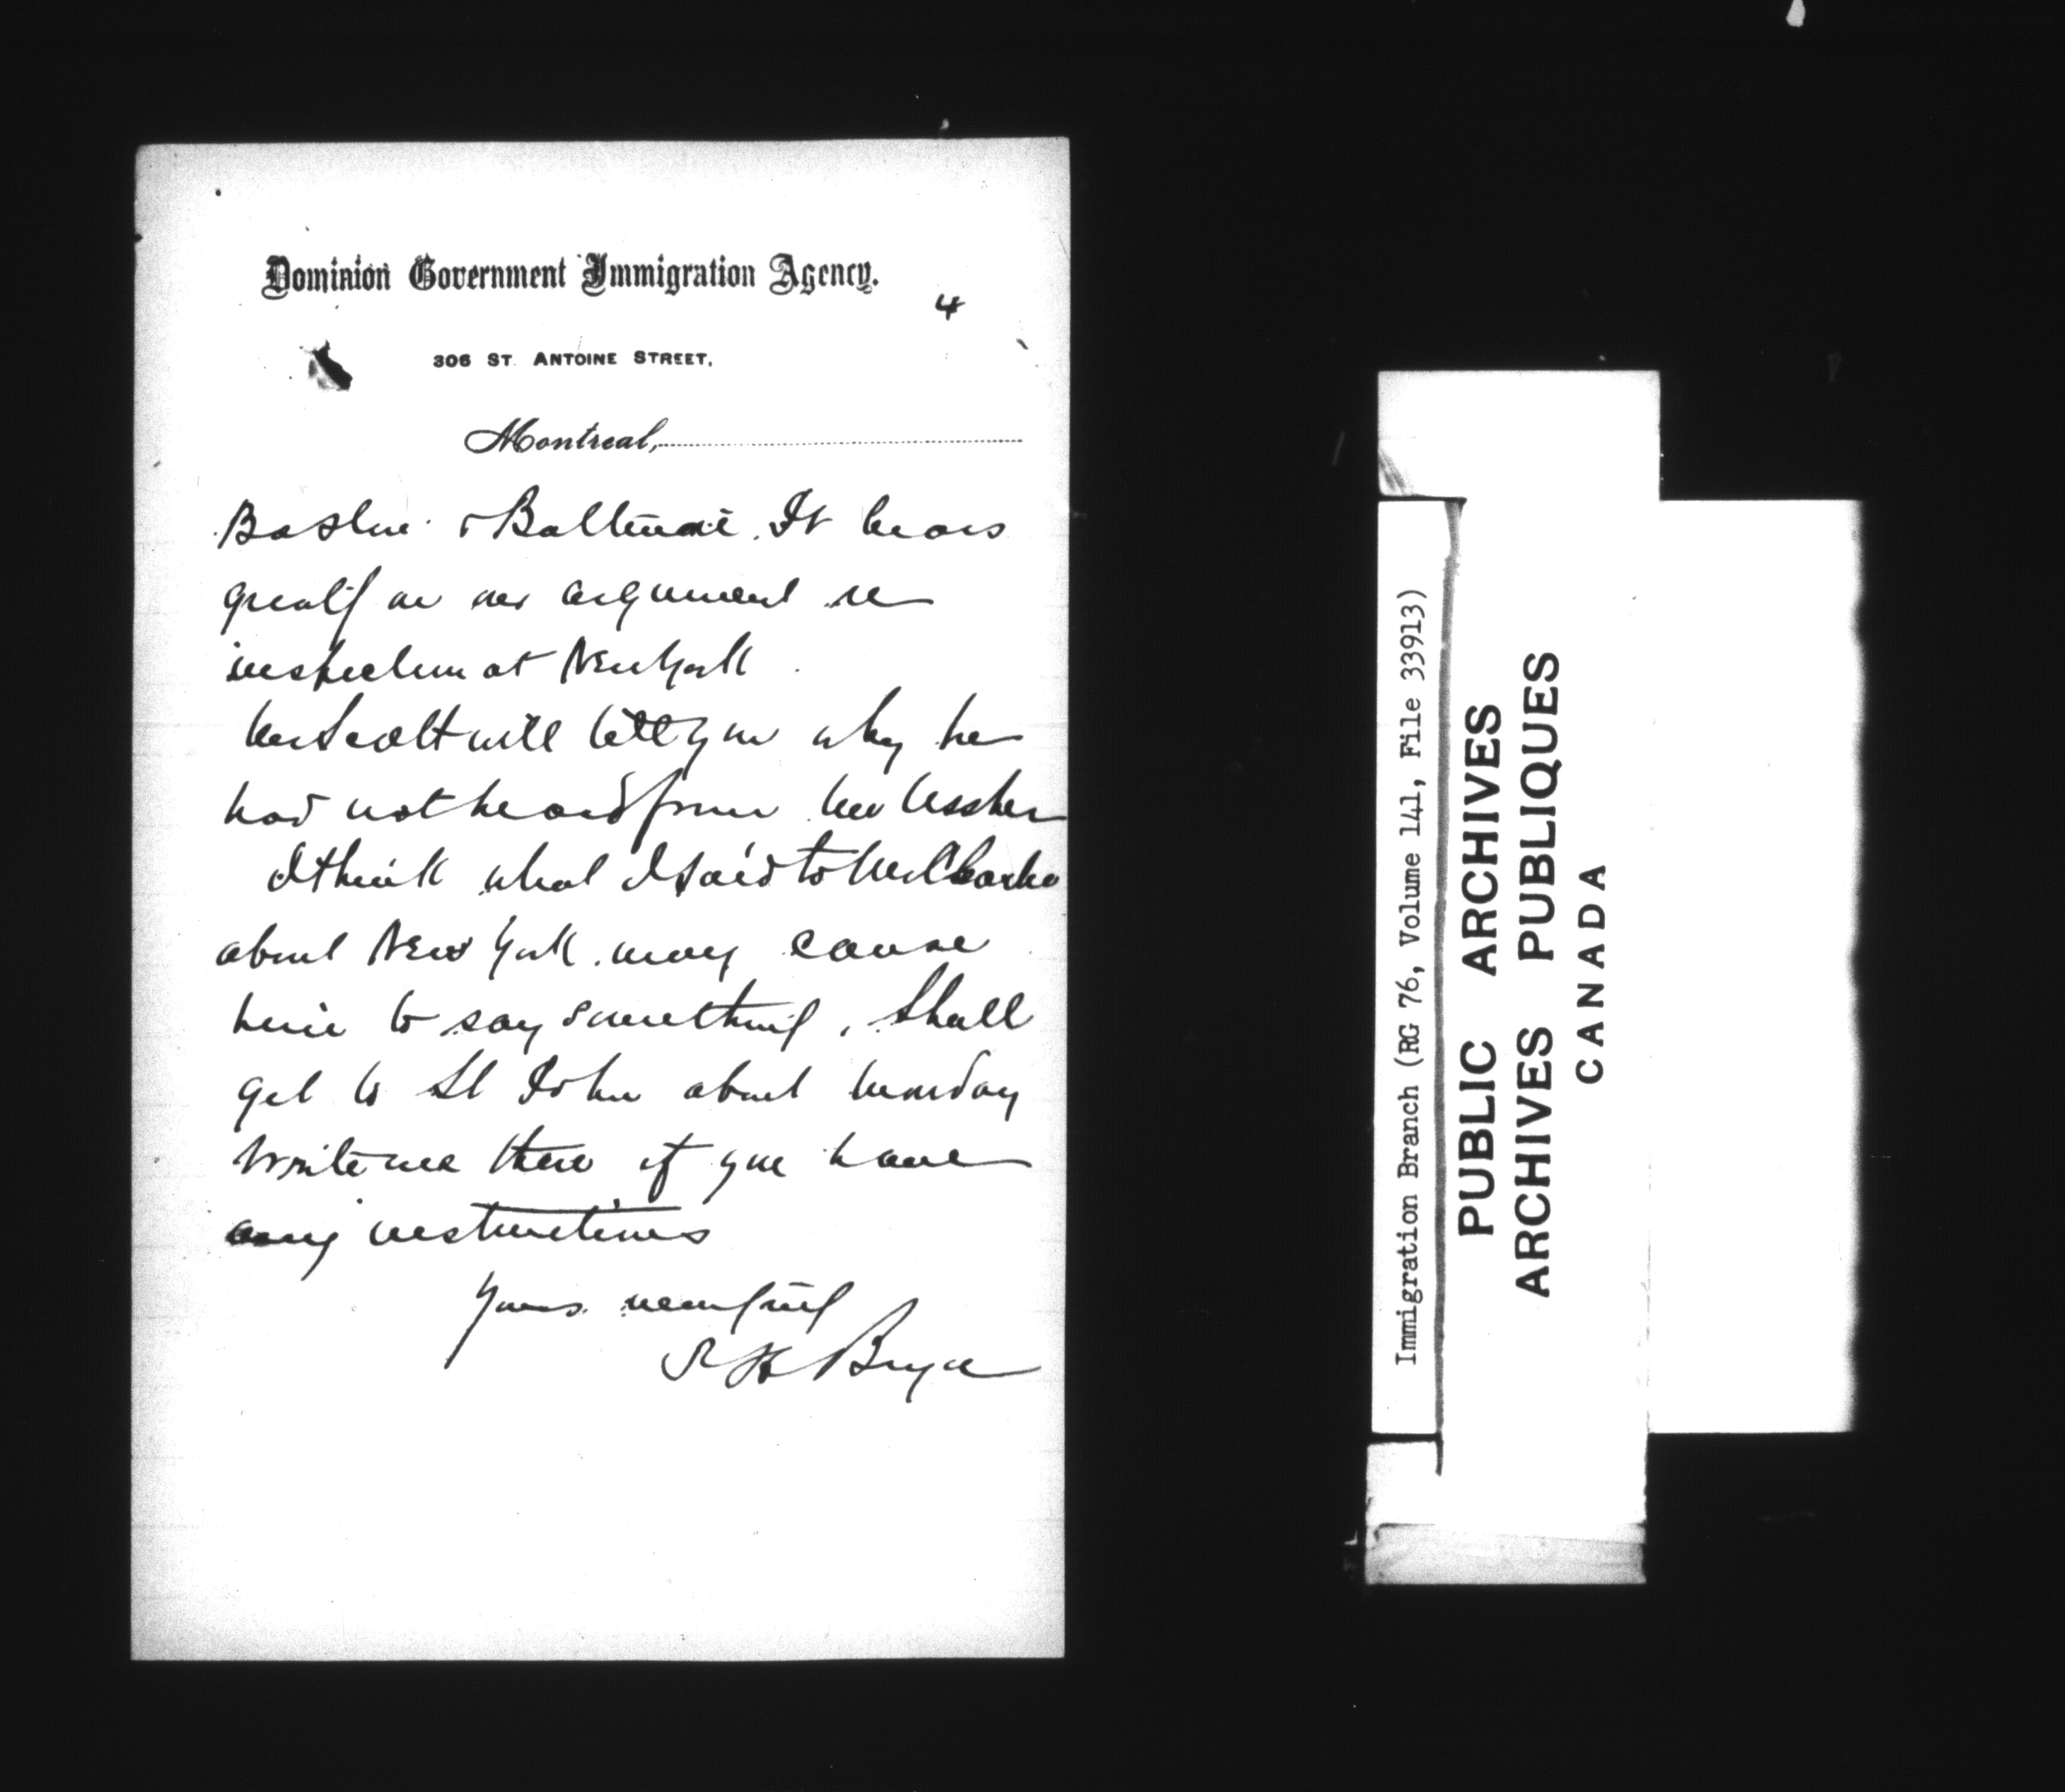 Dominion Government Immigration Agency.
4
306 ST. ANTOINE STREET,
Montreal,
Boston & Baltimore. It bears
greatly on our argument re
inspection at New York
Mr Scott will tell you why he
had not heard from Mr Ussher
I think what I said to Mr Clarke
about New York may cause
him to say something, Shall
get to St John about Monday
Write me there if you have
any instructions
Yours
P H Bryce
Immigration Branch (RG 76, Volume 141, File 33913)
PUBLIC ARCHIVES
ARCHIVES PUBLIQUES
CANADA